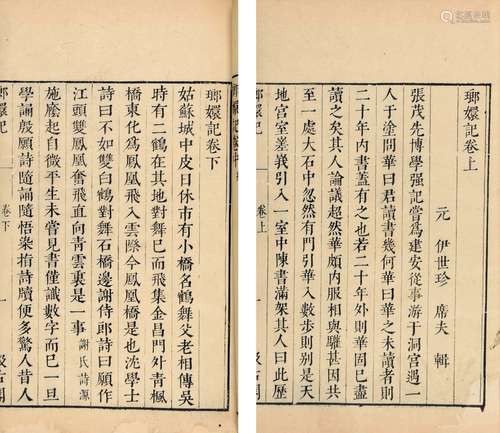 瑯嬛記卷上
元 伊世珍 席夫 輯
張茂先博學强記嘗爲建安從事游于洞宮遇一
人于塗問華曰君讀書幾何華曰華之未讀者則
二十年內書蓋有之也若二十年外則華固已盡
讀之矣其人論議超然華頗內服相與驩甚因共
至一處大石中忽然有門引華入數步則别是天
地宮室嵯峩引入一室中陳書滿架其人曰此歷
瑯嬛記 卷上 一 汲古閣
瑯嬛記卷下
姑蘇城中皮日休市有小橋名鶴舞父老相傳吳
時有二鶴在其地對舞已而飛集金昌門外青楓
橋東化爲鳳凰飛入雲際今鳳凰橋是也沈學士
詩曰不如雙白鶴對舞石橋邊謝侍郎詩曰願作
江頭雙鳳凰奮飛直向青雲裏是一事 謝氏詩源
施麽起自微平生未嘗見書僅識數字而已一旦
學誦殷願詩隨誦隨悟染指詩牘便多驚人昔人
瑯嬛記 卷下 一 汲古閣